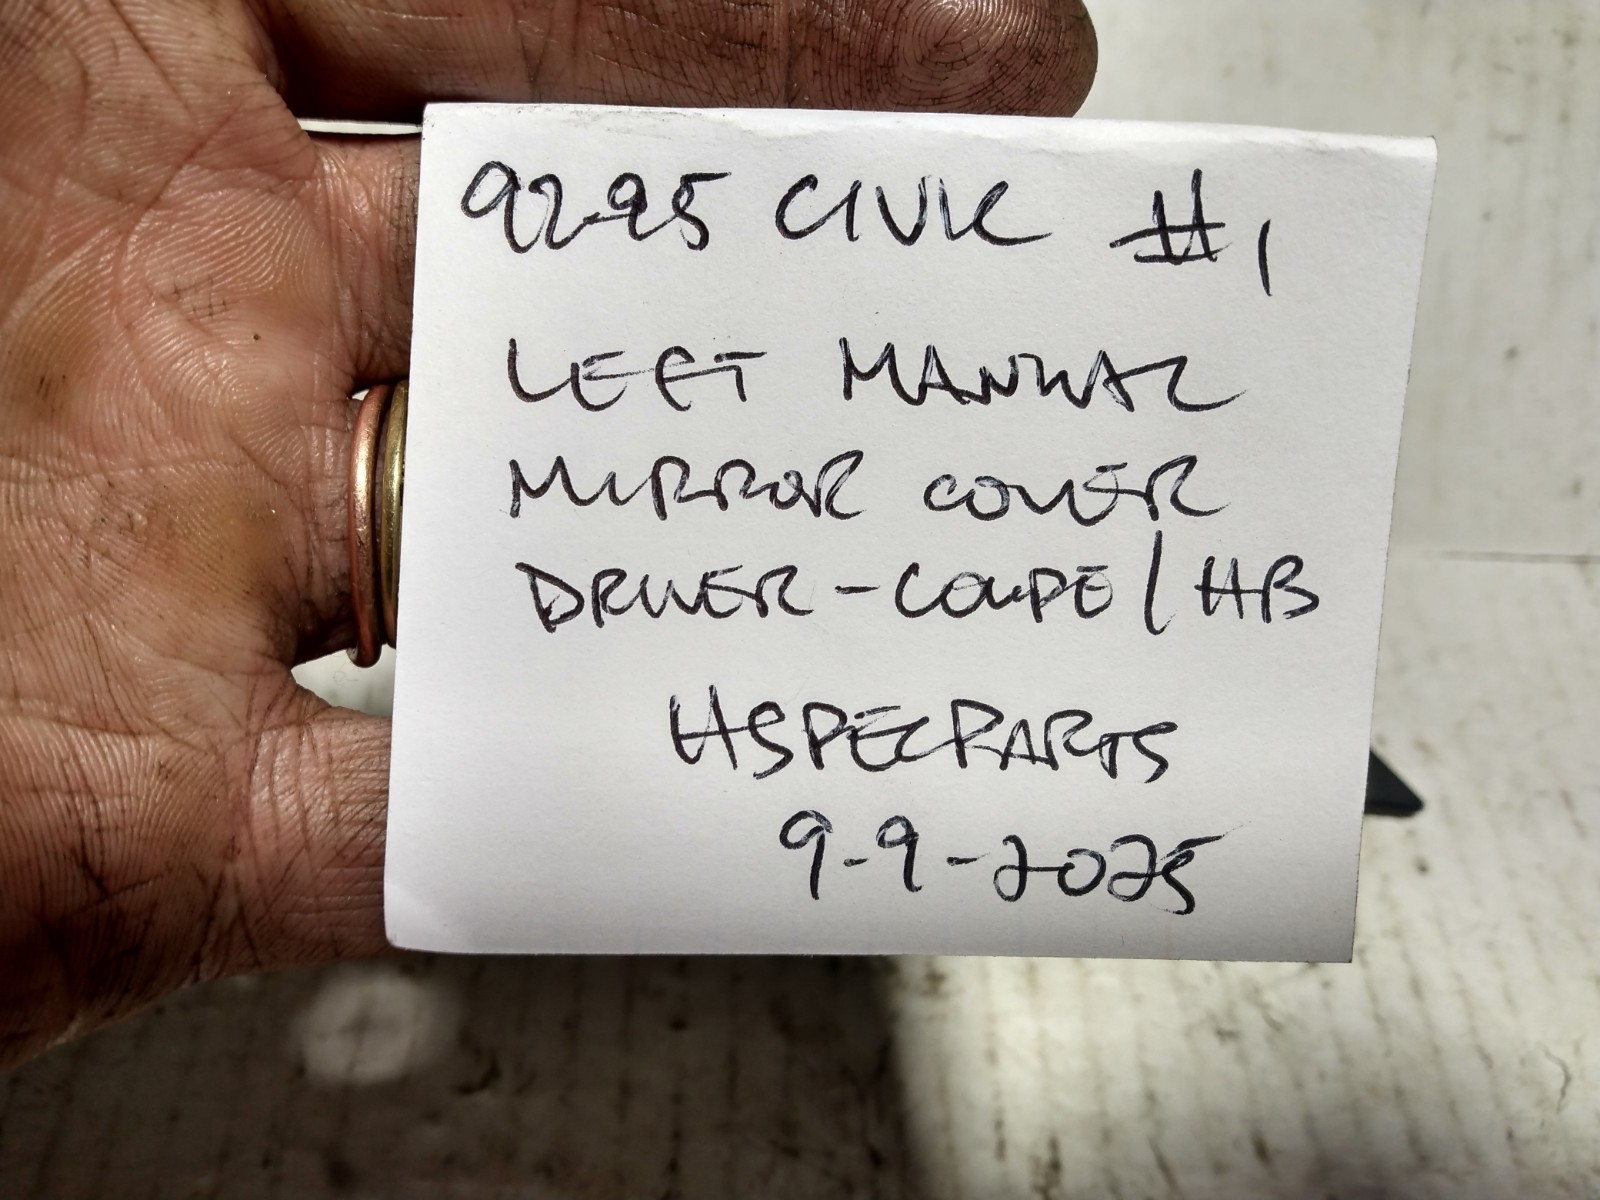 92-95 CIVIC #1
LEFT MANUAL
MIRROR COVER
DRIVER - COUPE / HB
HSPECPARTS
9-9-2025